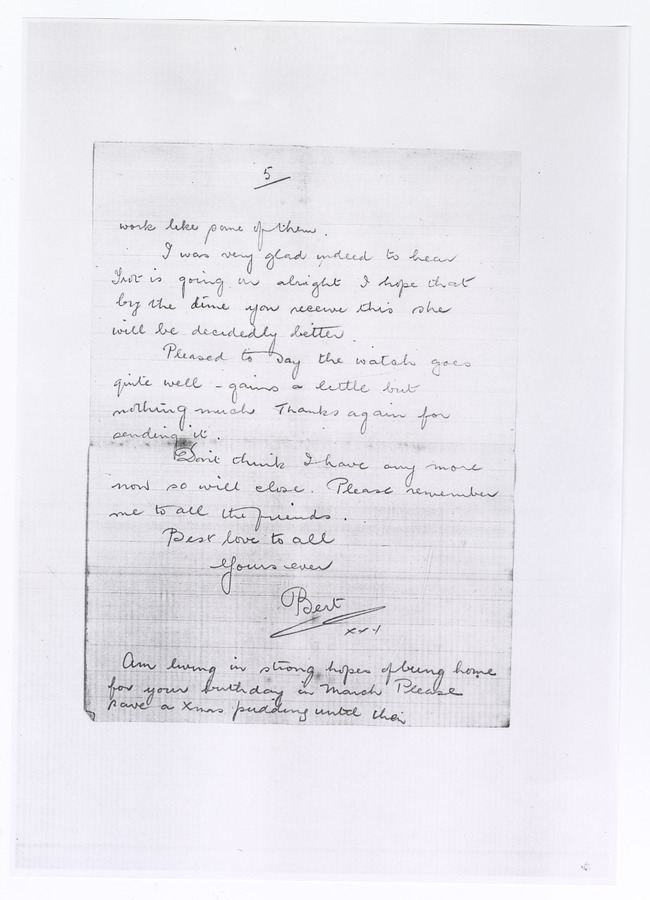 5
work like some of them.
I was very glad indeed to hear
Trot is going on alright I hope that
by the time you receive this she
will be decidedly better.
Pleased to say the watch goes
quite well - gains a little but
nothing much Thanks again for
sending it.
Don't think I have any more
now so will close. Please remember
me to all the friends.
Best love to all
Yours ever
Bert
xxx
Am living in strong hopes of being home
for your birthday in March Please
save a Xmas pudding until then